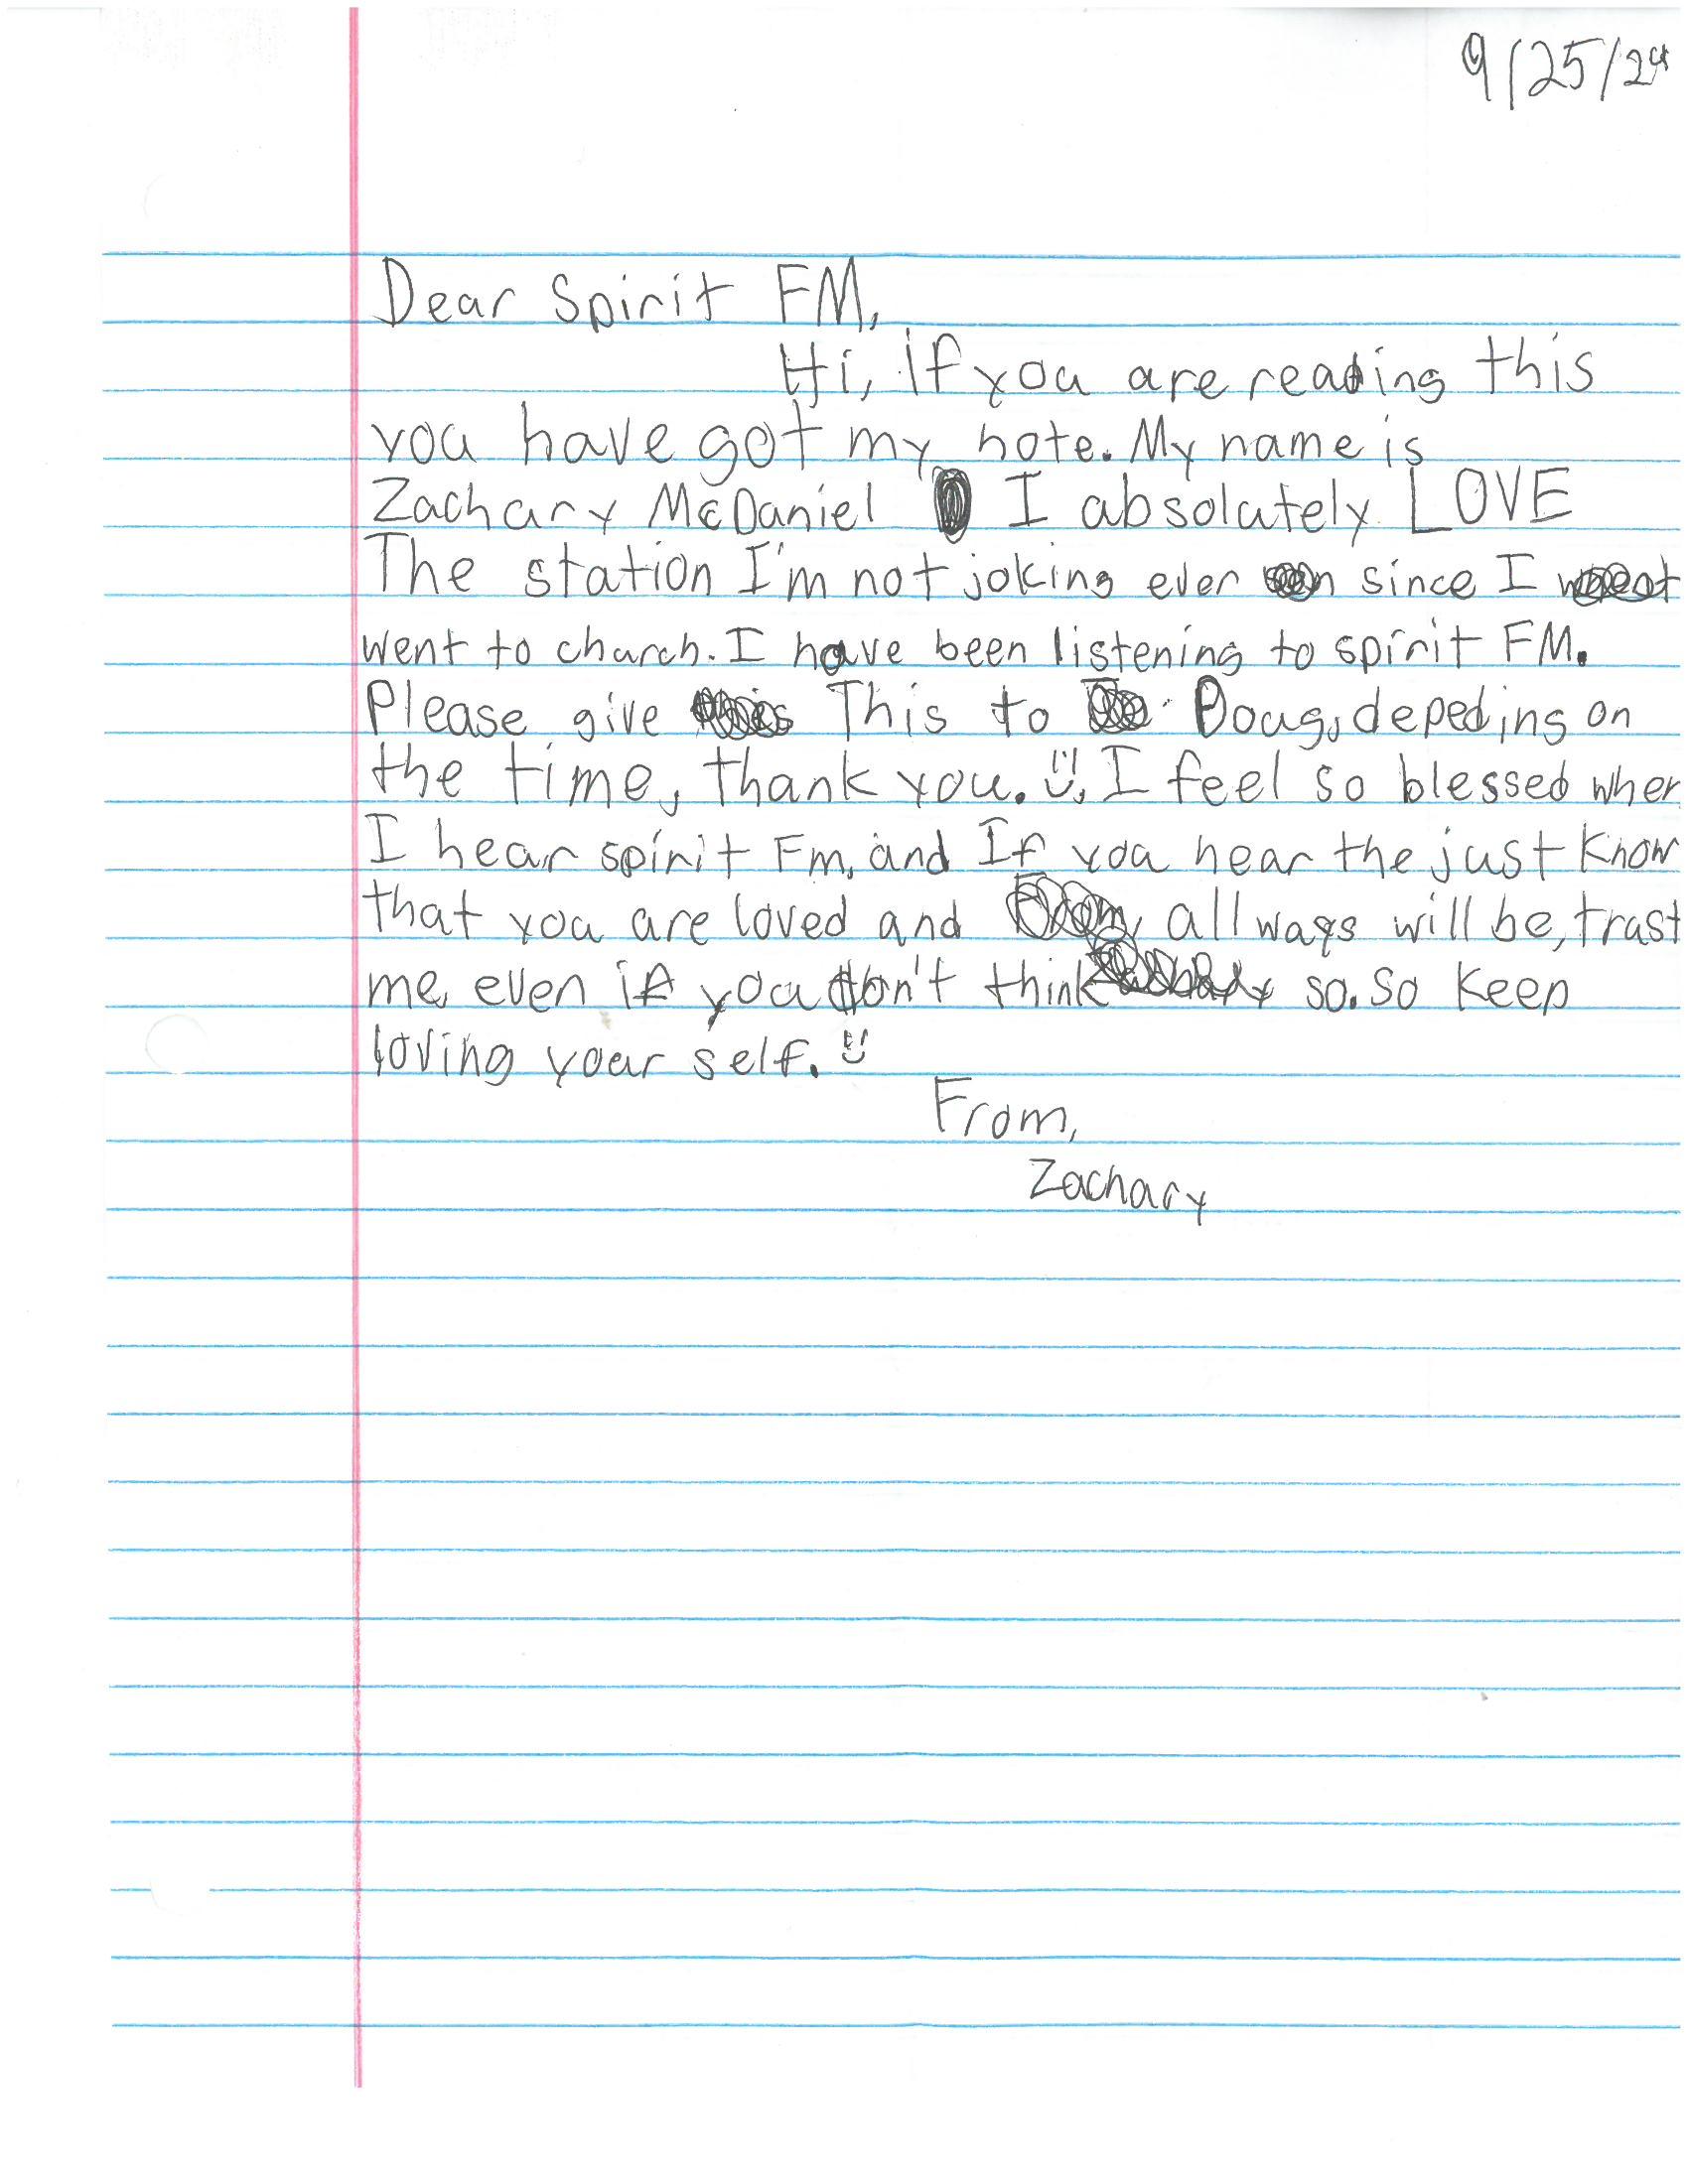 9/25/24
Dear Spirit FM,
Hi, If you are reading this
you have got my note. My name is
Zachary McDaniel I absolutely LOVE
The station I'm not joking ever since I
went to church. I have been listening to spirit FM.
Please give This to Doug, depeding on
the time, thank you. I feel so blessed when
I hear spirit Fm, and If you hear the just know
that you are loved and all ways will be, trust
me, even if you don't think so. So keep
loving your self.
From,
Zachary